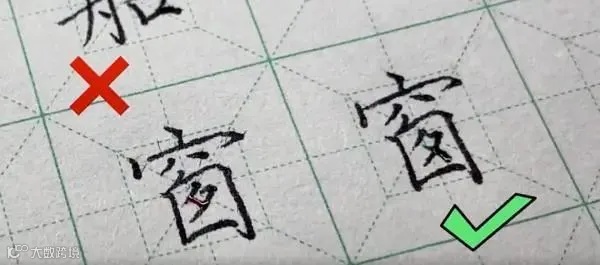 窗 窗
大数跨境